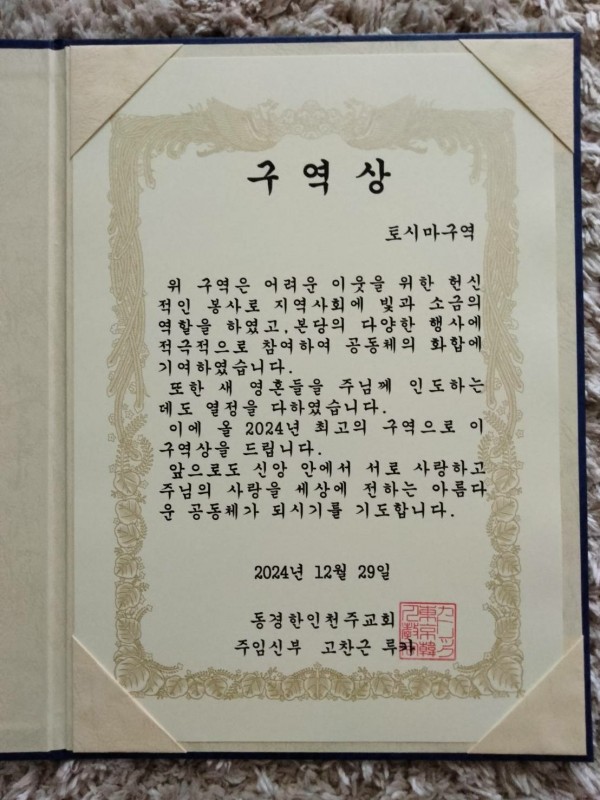 구역상
토시마구역
위 구역은 어려운 이웃을 위한 헌신
적인 봉사로 지역사회에 빛과 소금의
역할을 하였고,본당의 다양한 행사에
적극적으로 참여하여 공동체의 화합에
기여하였습니다.
또한 새 영혼들을 주님께 인도하는
데도 열정을 다하였습니다.
이에 올 2024년 최고의 구역으로 이
구역상을 드립니다.
앞으로도 신앙 안에서 서로 사랑하고
주님의 사랑을 세상에 전하는 아름다
운 공동체가 되시기를 기도합니다.
2024년 12월 29일
동경한인천주교회
주임신부 고찬근 루카
カトリック
東京韓